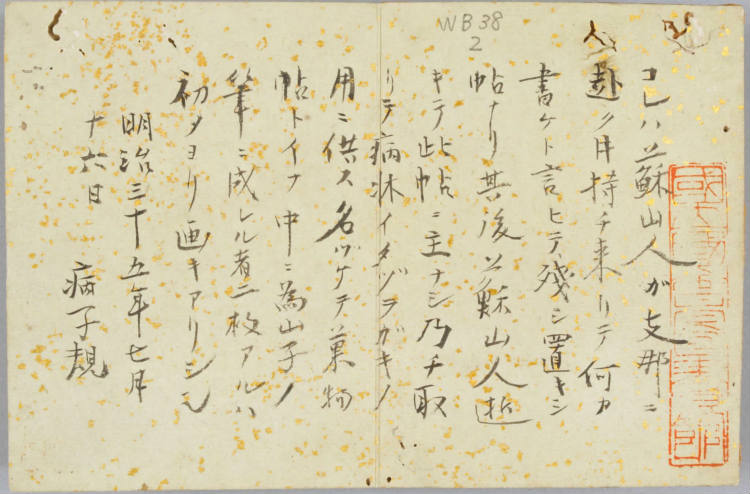 WB38
2
コレハ蘇山人ガ支那ニ
赴ク持チ来リテ何カ
書ケト言ヒテ残シ置キシ
帖ナリ其後蘇山人逝
キテ此帖ニ主ナシ乃チ取
リテ病牀イタヅラガキノ
用ニ供ス名ヅケテ菓物
帖トイフ中ニ為山子ノ
筆ニ成レル者二枚アルハ
初メヨリ画キアリシ也
明治三十五年七月
十六日　病子規